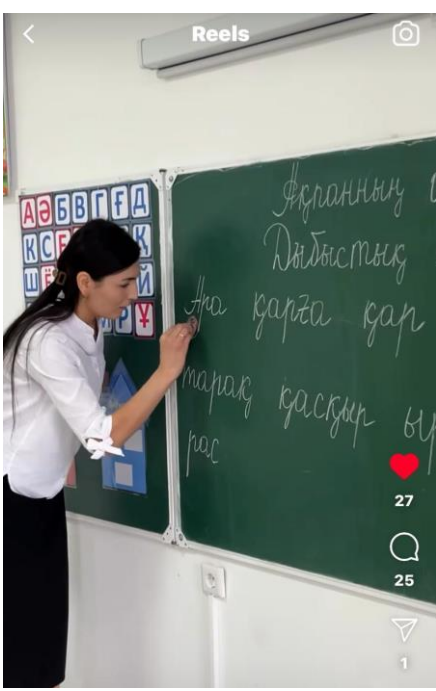 Reels
А Ә Б В Г Ғ Д
К
Ш Ё Й
Р Ұ
Ақпанның
Дыбыстық
Ара қарға қар
тарақ қасқыр
рас
27
25
1